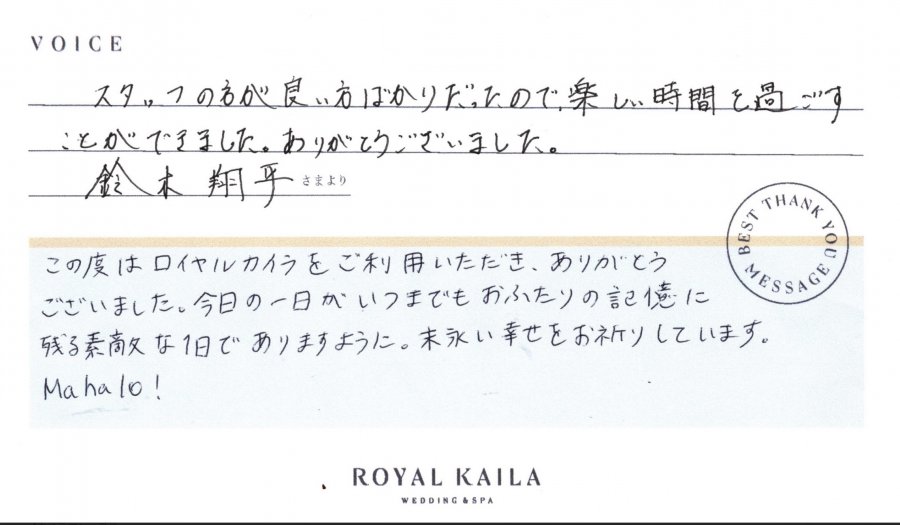 VOICE
スタッフの方が良い方ばかりだったので、楽しい時間を過ごす
ことができました。ありがとうございました。
鈴木 翔平 さまより
BEST THANK YOU MESSAGE
この度はロイヤルカイラをご利用いただき、ありがとう
ございました。今日の一日がいつまでもおふたりの記憶に
残る素敵な1日でありますように。末永い幸せをお祈りしています。
Mahalo!
ROYAL KAILA
WEDDING & SPA